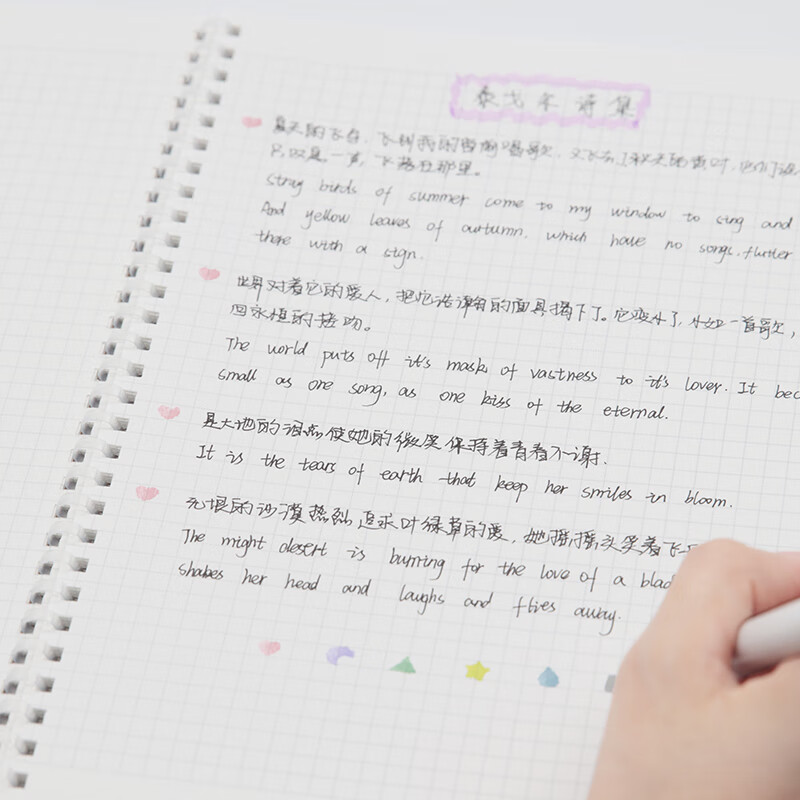 泰戈尔诗集
夏天的飞鸟，飞到我的窗前唱歌，又飞去了秋天的黄叶，它们没
只叹息一声，飞落在那里。
stray birds of summer come to my window to sing and
And yellow leaves of aurtumn. which have no songs.flutter
there with a sign.
世界对着它的爱人，把它浩瀚的面具摘下了。它变小了，小如一首歌，
回永恒的接吻。
The world puts off it's mask of vastness to it's lover. It bec
small as one song, as one kiss of the eternal.
是大地的泪点使她的微笑保持着青春不谢.
It is the tears of earth that keep her smiles in bloom.
无垠的沙漠热烈追求叶绿草的爱，她摇摇头笑着飞
The might desert is burning for the love of a blad
shakes her head and laughs and flies away.